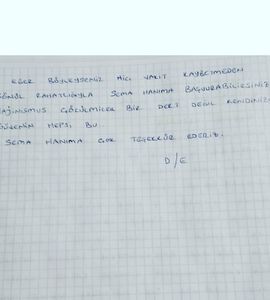 EĞER BÖYLEYSENİZ HİÇ VAKİT KAYBETMEDEN
GÖNÜL RAHATLIĞIYLA SEMA HANIMA BAŞVURABİLİRSİNİZ
VAJİNİSMUS ÇÖZÜLMİCEK BİR DERT DEĞİL KENDİNİZE
GÜVENİN HEPSİ BU.
SEMA HANIMA ÇOK TEŞEKKÜR EDERİZ.
D/E